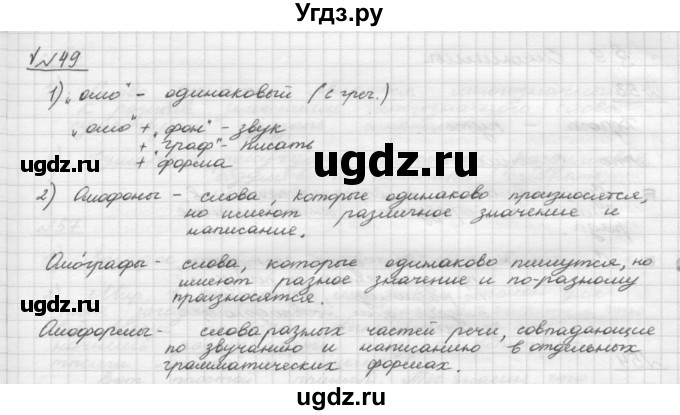 Угдз.ру
√№49
1) „омо" - одинаковый (с греч.)
„омо" + „фон" - звук
+ „граф" - писать
+ „форма
2) Омофоны - слова, которые одинаково произносятся,
но имеют различное значение и
написание.
Омографы - слова, которые одинаково пишутся, но
имеют разное значение и по-разному
произносятся.
Омоформы - слова разных частей речи, совпадающие
по звучанию и написанию в отдельных
грамматических формах.
ugdz.ru
ugdz.ru
ugdz.ru
ugdz.ru
ugdz.ru
ugdz.ru
ugdz.ru
ugdz.ru